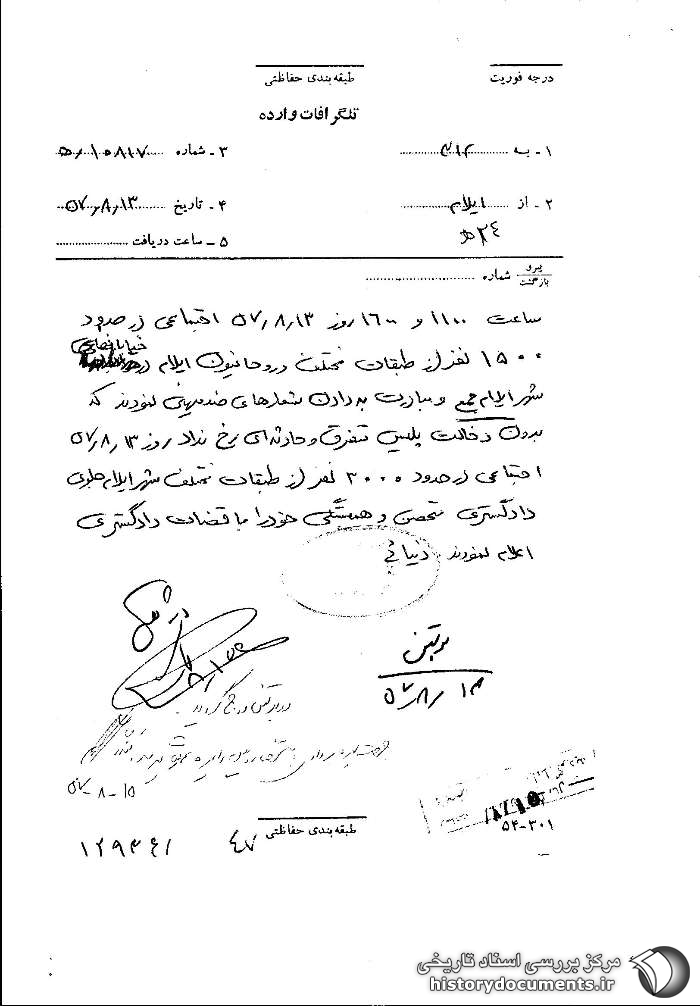 درجه فوریت
طبقه‌بندی حفاظتی
تلگرافات وارده
۱ - به ۳۱۲
۳ - شماره ۱۰۸۱۷/ه
۲ - از ایلام
۴ - تاریخ ۵۷/۸/۱۳
۲۴ ه
۵ - ساعت دریافت
پیرو
بازگشت
شماره
ساعت ۱۱۰۰ و ۱۶۰۰ روز ۵۷/۸/۱۳ اجتماعی در حدود
۱۵۰۰ نفر از طبقات مختلف و روحانیون ایلام در خیابانهای
شهر ایلام جمع و مبادرت به دادن شعارهای ضد میهنی نمودند که
بدون دخالت پلیس متفرق و حادثه‌ای رخ نداد روز ۵۷/۸/۱۳
اجتماعی در حدود ۳۰۰۰ نفر از طبقات مختلف شهر ایلام جلوی
دادگستری متحصن و همبستگی خود را با قضات دادگستری
اعلام نمودند. دنیائی
بولتن
۵۷/۸/۱۳
در بولتن درج گردید.
۵۷-۸-۱۵
۵۴-۳۰۱
طبقه‌بندی حفاظتی
۴۷
۱۲۹۳۶۱
مرکز بررسی اسناد تاریخی
historydocuments.ir